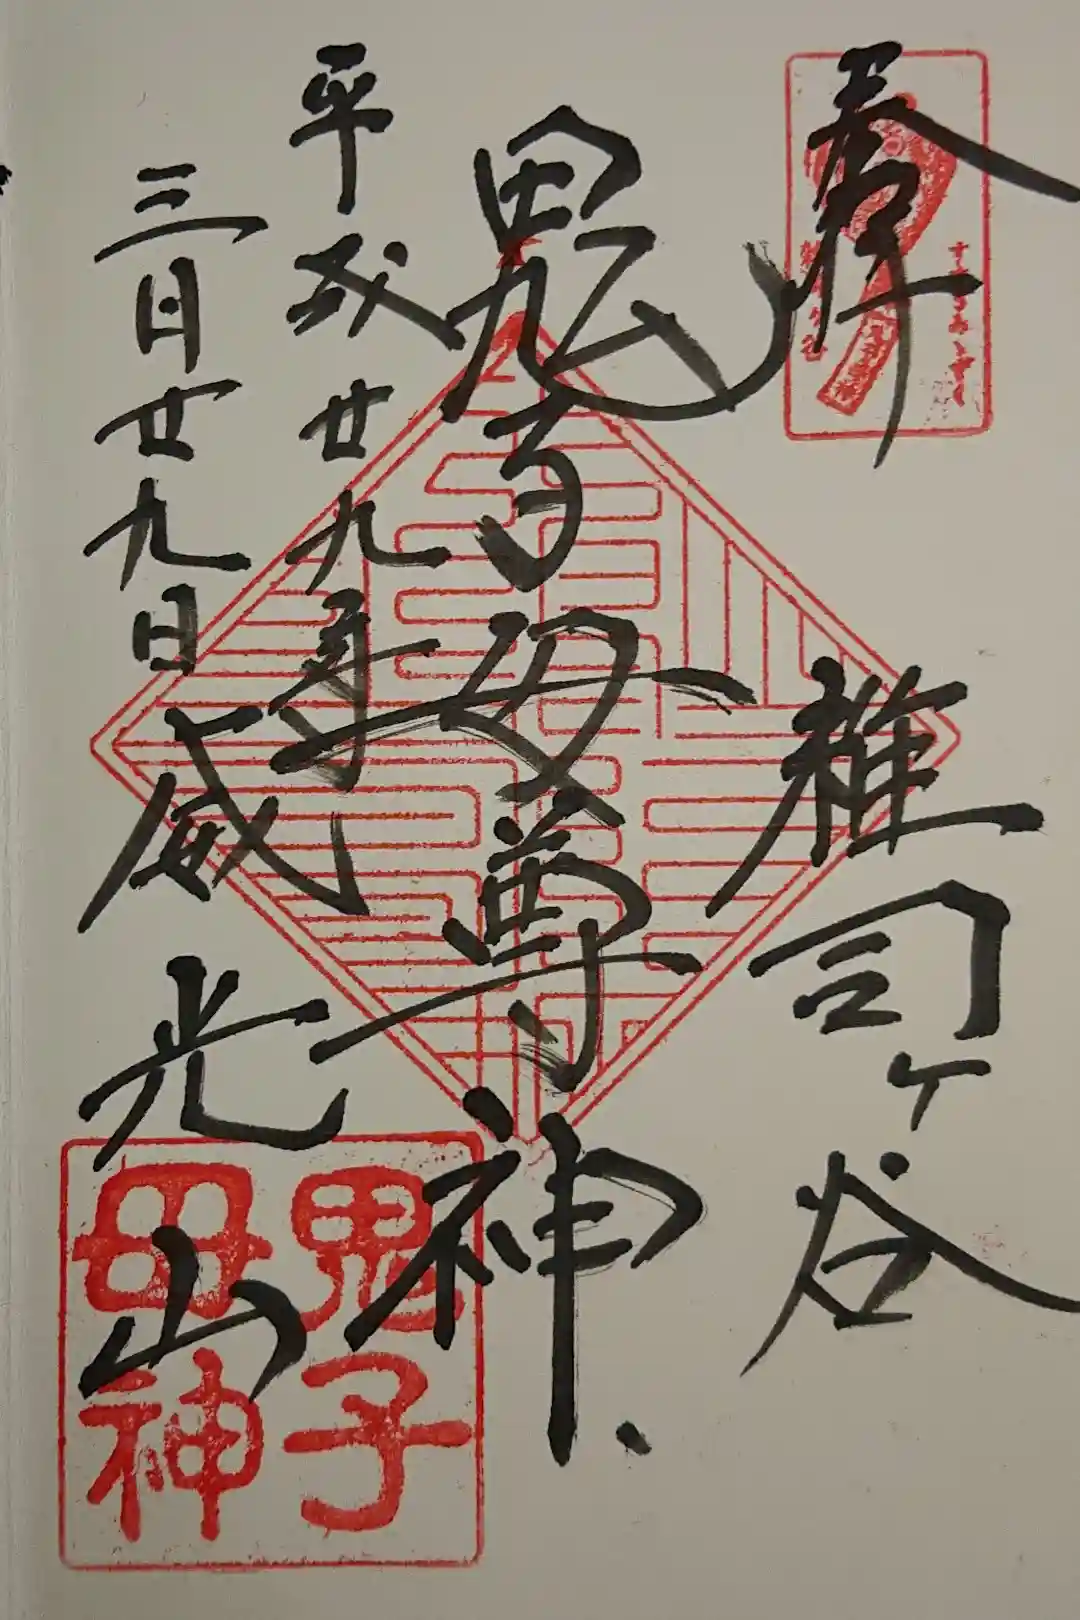 奉拝
雑司ケ谷
鬼子母尊神
平成廿九年
三月廿九日
威光山
鬼子
母神